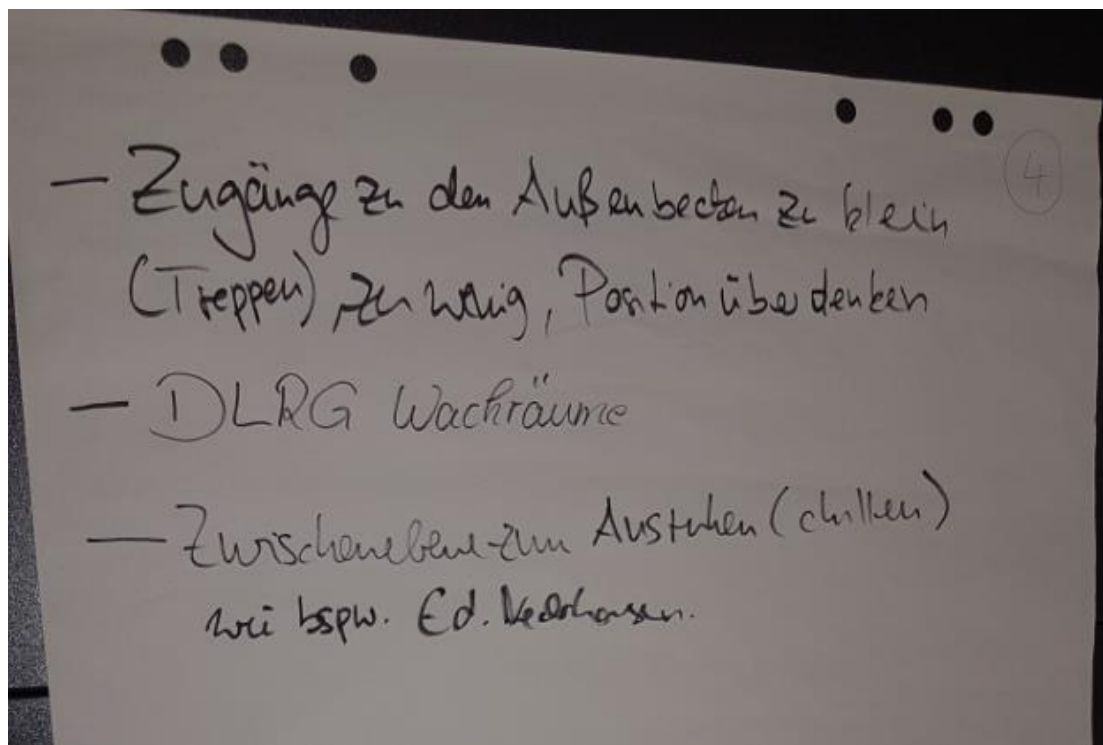 4
– Zugänge zu den Außenbecken zu klein
(Treppen), zu wenig, Position überdenken
– DLRG Wachräume
– Zwischenebene zum Ausruhen (chillen)
wie bspw. Ed.